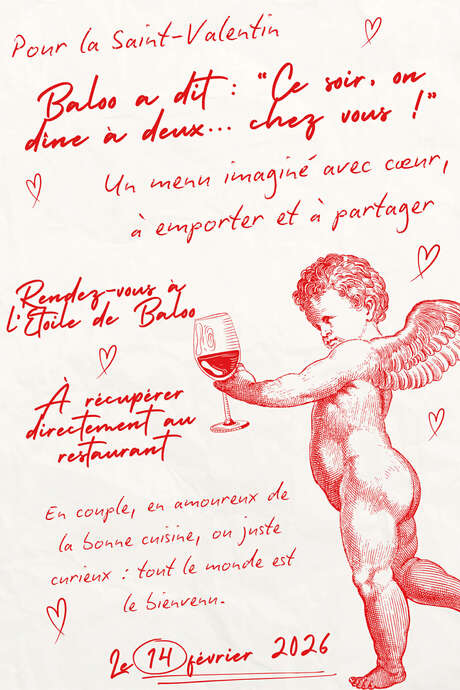 Pour la Saint-Valentin
Baloo a dit : "Ce soir, on
dîne à deux... chez vous !"
Un menu imaginé avec cœur,
à emporter et à partager
Rendez-vous à
L'Étoile de Baloo
À récupérer
directement au
restaurant
En couple, en amoureux de
la bonne cuisine, ou juste
curieux : tout le monde est
le bienvenu.
Le 14 février 2026